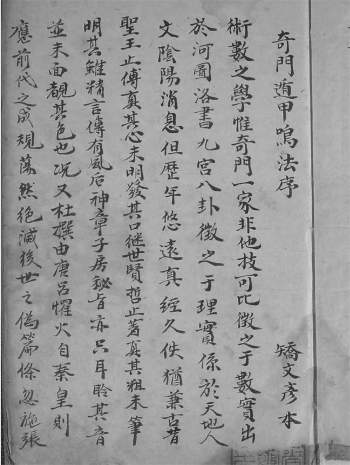 奇門遁甲鳴法序 矯文彥本
術數之學惟奇門一家非他技可比徵之于數實出
於河圖洛書九宮八卦徵之于理實係於天地人
文陰陽消息但歷年悠遠真經久佚猶兼古昔
聖王止傳真其心未明發其口继世賢哲止著真其粗未筆
明其雖精言傳有風后神章子房秘旨亦只耳聆其音
並未面覿其色也况又杜撰由唐呂懼火自秦皇則
應前代之成規蕩然絕滅後世之偽篇條忽施張